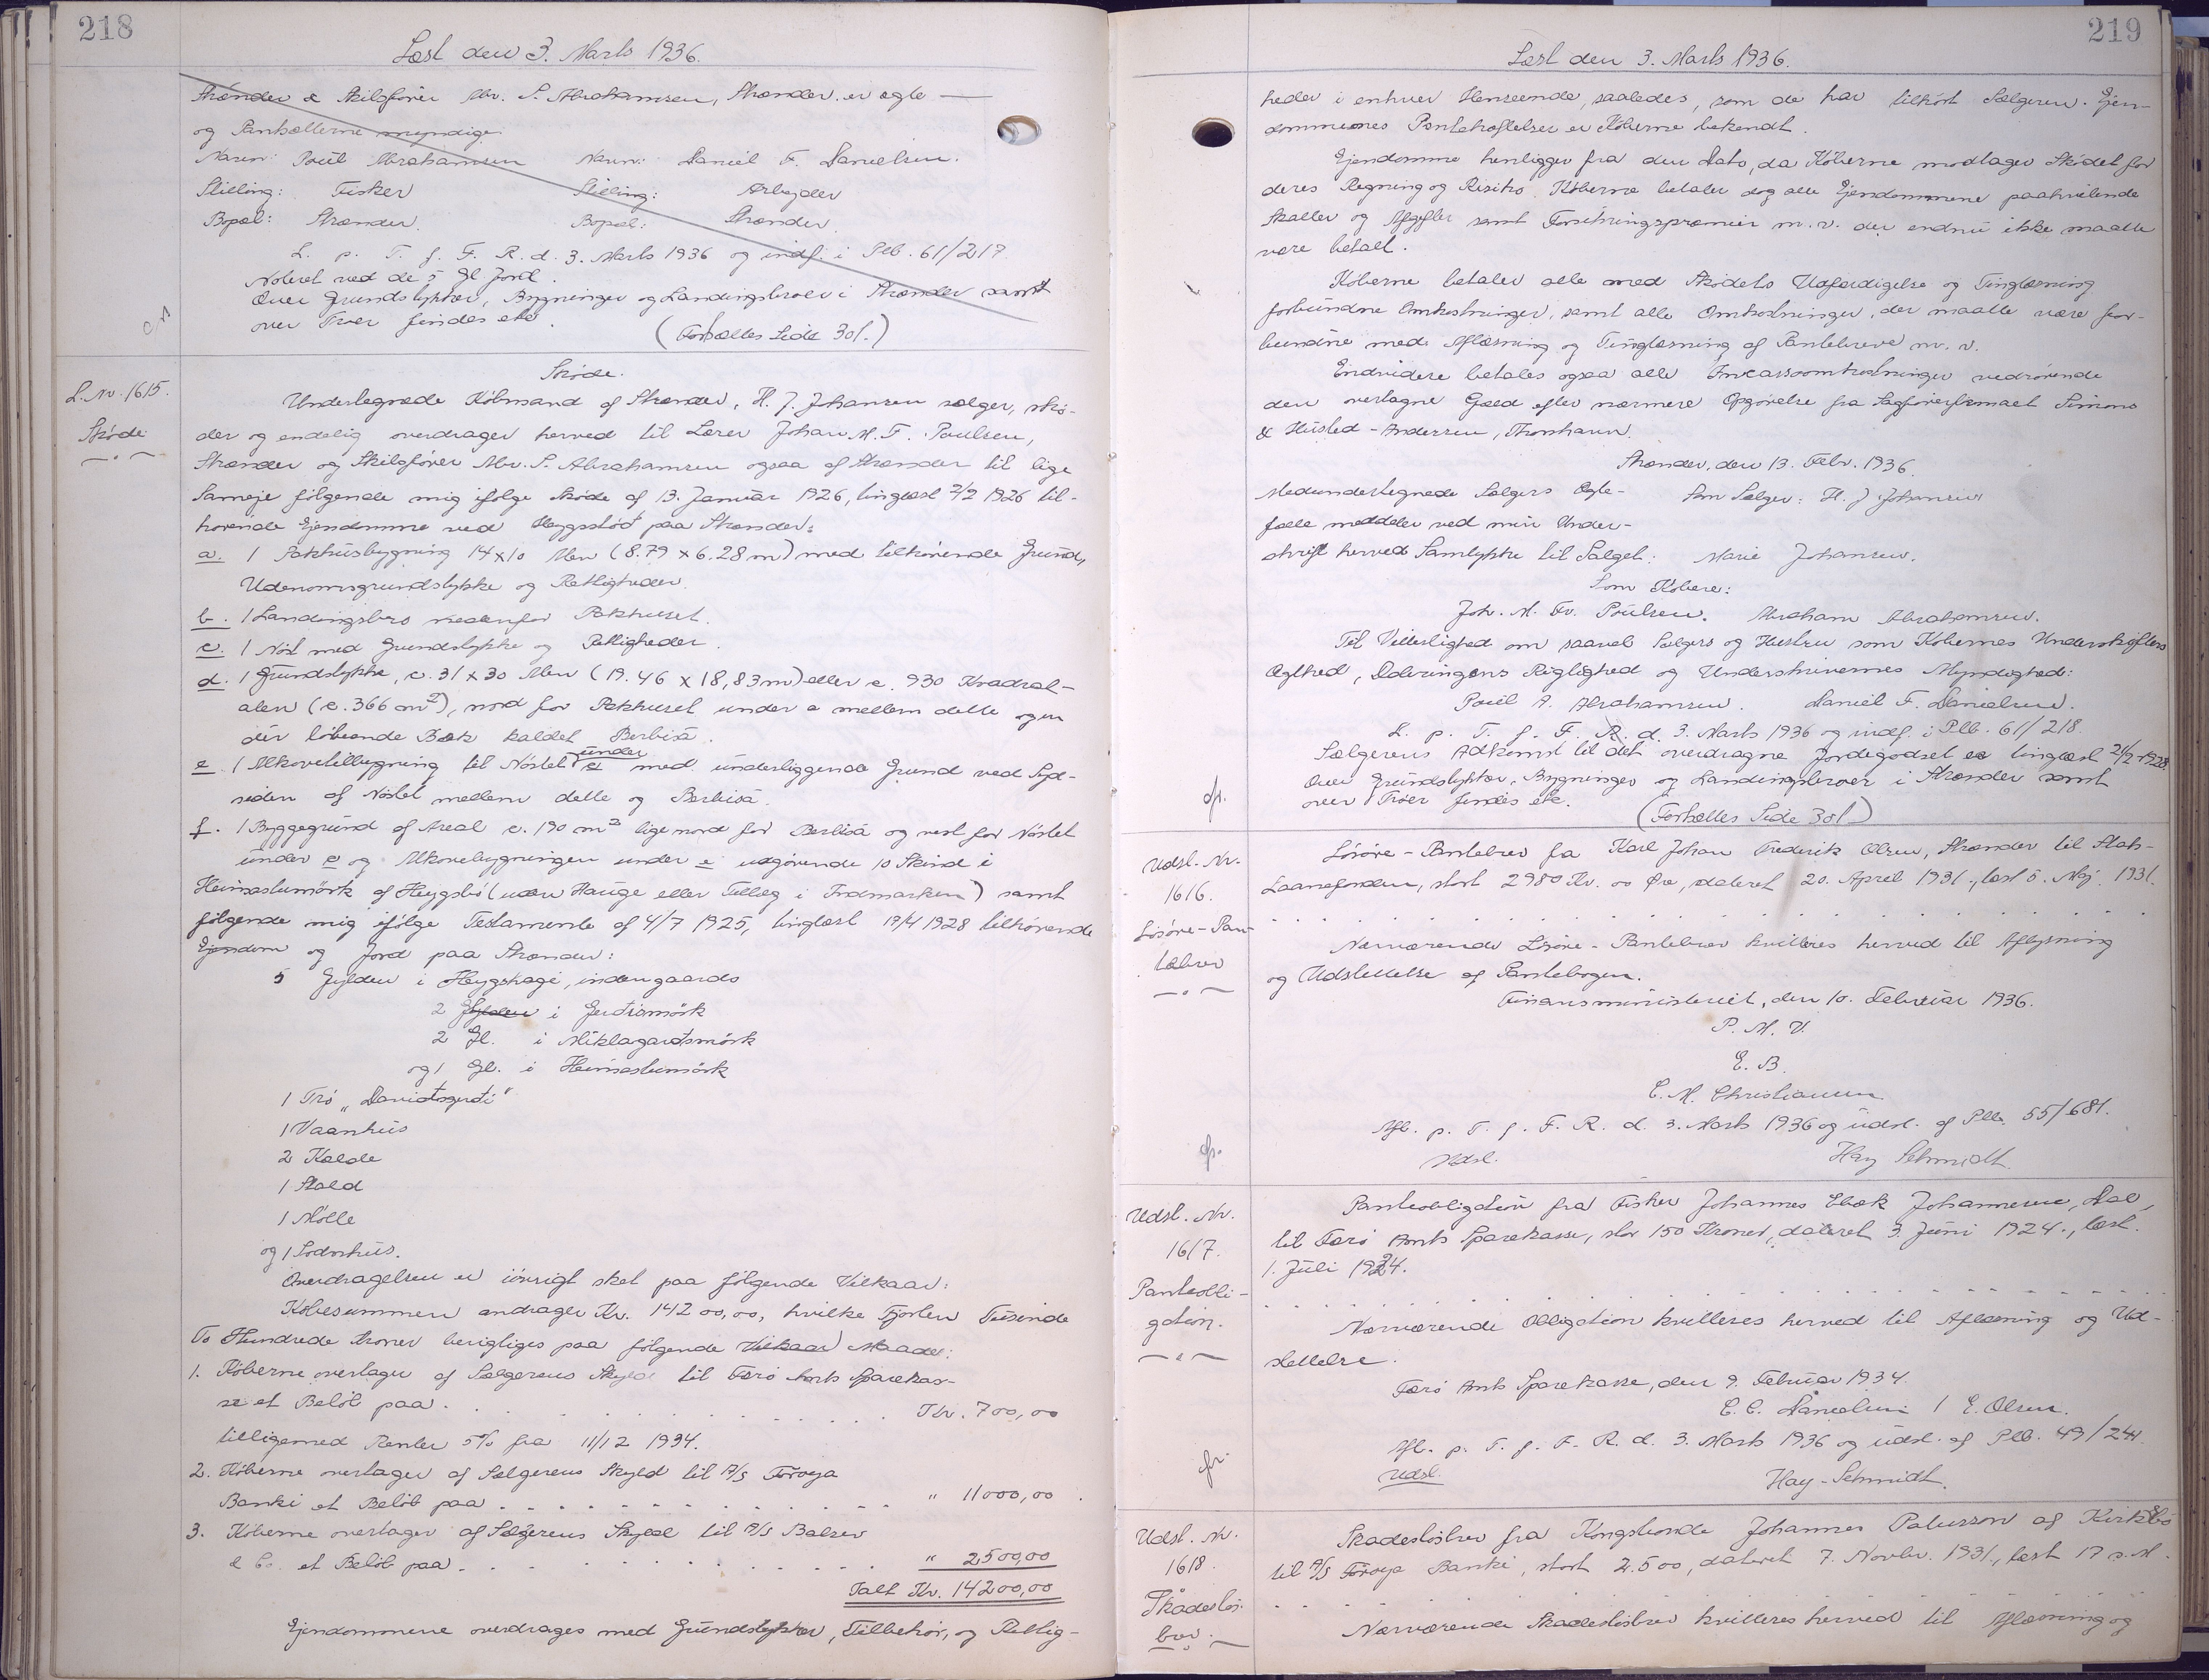 218
Læst den 3. Marts 1936.
Strænder & Skibsfører Abr. S. Abrahamsen, Strænder, er ægte
og Panthællerne myndige.
Navn: Poul Abrahamsen Navn: Daniel F. Danielsen.
Stilling: Fisker Stilling: Arbejder
Bopæl: Strænder. Bopæl: Strænder.
L. p. T. f. F. R. d. 3. Marts 1936 og indf. i Plb. 61/217
Noteret ved de 5 Gl Jord.
Over Grundstykker, Bygninger og Landingsbroer i Strænder samt
over Trøer findes etc. (Fortsættes Side 301.)
L. Nr. 1615.
Skøde
Skøde.
Undertegnede Købmand af Strænder, H. J. Johansen sælger, skø-
der og endelig overdrager herved til Lærer Johan M. F. Poulsen,
Strænder og Skibsfører Abr. S. Abrahamsen ogsaa af Strænder til lige
Sameje følgende mig ifølge Skøde af 13. Januar 1926, tinglæst 2/2 1926 til-
hørende Ejendomme ved Heygsstøð paa Strænder:
a. 1 Pakhusbygning 14 x 10 Alen (8.79 x 6.28 m) med tilhørende Grund,
Udenomsgrundstykke og Rettigheder.
b. 1 Landingsbro nedenfor Pakhuset.
c. 1 Nøst med Grundstykke og Rettigheder.
d. 1 Grundstykke, c. 31 x 30 Alen (19.46 x 18,83 m) eller c. 930 Kvadrat-
alen (c. 366 m²), nord for Pakhuset under a mellem dette og en
dér løbende Bæk kaldet Berbisá.
e. 1 Alkovetilbygning til Nøstet under c med underliggende Grund ved Syd-
siden af Nøstet mellem dette og Berbisá.
f. 1 Byggegrund af Areal c. 190 m² lige nord for Berbisá og vest for Nøstet
under c og Alkovebygningen under e udgørende 10 Skind i
Heimastumörk af Heygsbö (uden Hauge eller Tillæg i Indmarken) samt
følgende mig ifølge Testamente af 4/7 1925, tinglæst 19/4 1928 tilhørende
Ejendom og Jord paa Strænder:
5 Gylden i Heygshagi, indengaards
2 Gylden i Gerðismörk
2 Gl. i Miklagarðsmörk
og 1 Gl. i Heimastumörk
1 Trø "Davidsgerði"
1 Vaanhus
2 Kælde
1 Stald
1 Mølle
og 1 Sodnhus.
Overdragelsen er iøvrigt sket paa følgende Vilkaar:
Købesummen andrager Kr. 14200,00, hvilke Fjorten Tusinde
To Hundrede Kroner berigtiges paa følgende Vilkaar Maade:
1. Køberne overtager af Sælgerens Skyld til Færø Amts Sparekas-
se et Beløb paa . . . . . . . . . Kr. 700,00
tilligemed Renter 5% fra 11/12 1934.
2. Køberne overtager af Sælgerens Skyld til A/S Føroya
Banki et Beløb paa . . . . . . . . . " 11000,00.
3. Køberne overtager af Sælgerens Skyld til A/S Balslev
& Co. et Beløb paa . . . . . . . . . " 2500,00
Ialt Kr. 14200,00
Ejendommene overdrages med Grundstykker, Tilbehør, og Rettig-
219
Læst den 3. Marts 1936.
heder i enhver Henseende, saaledes, som de har tilhørt Sælgeren. Ejen-
dommenes Pantehæftelser er Køberne bekendt.
Ejendomme henligger fra den Dato, da Køberne modtager Skødet for
deres Regning og Risiko. Køberne betaler dog alle Ejendommene paahvilende
Skatter og Afgifter samt Forsikringspræmier m. v. der endnu ikke maatte
være betalt.
Køberne betaler alle med Skødets Udfærdigelse og Tinglæsning
forbundne Omkostninger, samt alle Omkostninger, der maatte være for-
bundne med Aflæsning og Tinglæsning af Pantebreve m. v.
Endvidere betales ogsaa alle Incassoomkostninger vedrørende
den overtagne Gæld efter nærmere Opgørelse fra Sagførerfirmaet Simons
& Husted-Andersen, Thorshavn.
Strænder, den 13. Febr. 1936.
Medundertegnede Sælgers Ægte- Som Sælger: H. J Johansen
fælle meddeler ved min Under-
skrift herved Samtykke til Salget. Marie Johansen.
Som Købere:
Joh. M. Fr. Poulsen. Abraham Abrahamsen.
Til Vitterlighed om saavel Sælgers og Hustru som Købernes Underskrifters
Ægthed, Dateringens Rigtighed og Underskrivernes Myndighed:
Poul A. Abrahamsen. Daniel F. Danielsen.
L. p. T. f. F. R. d. 3. Marts 1936 og indf. i Plb. 61/218.
Sælgerens Adkomst til det overdragne Jordegodset er tinglæst 21/2 1928.
Over Grundstykker, Bygninger og Landingsbroer i Strænder samt
over Trøer findes etc. (Fortsættes Side 301.)
Udsl. Nr.
1616.
Løsøre-Pan-
tebrev
Løsøre-Pantebrev fra Karl Johan Frederik Olsen, Strænder til Stats-
Laanefonden, stort 2980 Kr. 00 Øre, dateret 20. April 1931., læst 5. Maj 1931.
Nærværende Løsøre-Pantebrev kvitteres herved til Aflysning
og Udslettelse af Pantebogen.
Finansministeriet, den 10. Februar 1936.
P. M. V.
E. B.
C. M. Christiansen
Afl. p. T. f. F. R. d. 3. Marts 1936 og udsl. af Plb. 55/681.
Udsl. Hay Schmidt.
Udsl. Nr.
1617.
Panteobli-
gation.
Panteobligation fra Fisker Johannes Ebæk Johannesen, Dal,
til Færø Amts Sparekasse, stor 150 Kroner, dateret 3. Juni 1924., læst
1. Juli 1924.
Nærværende Obligation kvitteres herved til Aflæsning og Ud-
slettelse.
Færø Amts Sparekasse, den 9. Februar 1934.
C. C. Danielsen / E. Olsen.
Afl. p. T. f. F. R. d. 3. Marts 1936 og udsl. af Plb. 49/241.
Udsl. Hay-Schmidt.
Udsl. Nr.
1618.
Skadesløs-
brev.
Skadesløsbrev fra Kongsbonde Johannes Patursson af Kirkebø
til A/S Føroya Banki, stort 2.500, dateret 7. Novbr. 1931., læst 17 s. M.
Nærværende Skadesløsbrev kvitteres herved til Aflæsning og